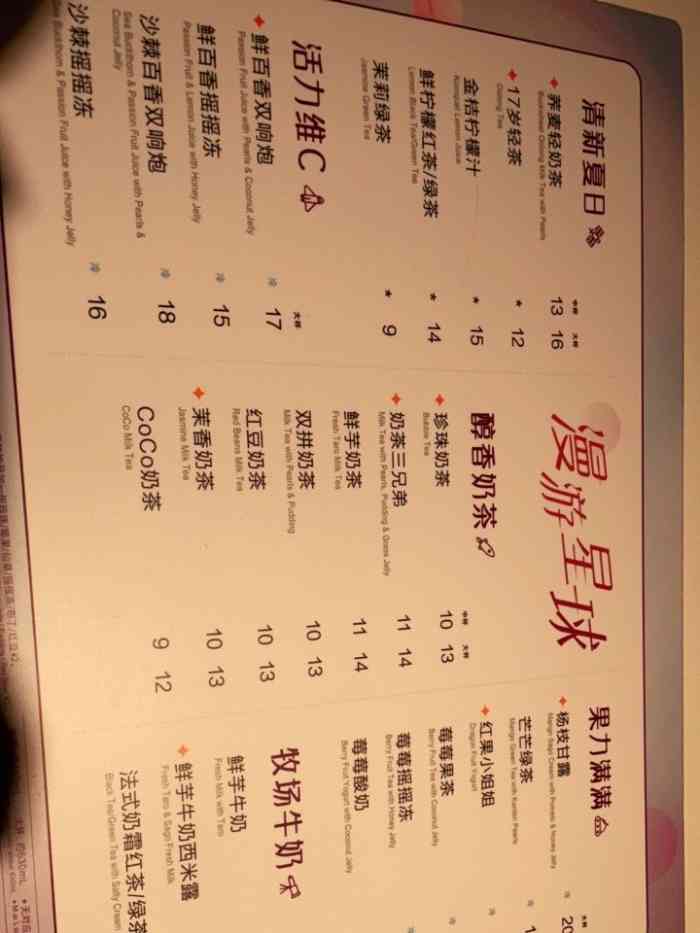 清新夏日
中杯 大杯
荞麦轻奶茶 13 16
Buckwheat Oolong Milk Tea with Pearls
17岁轻茶 * 12
Oolong Tea
金桔柠檬汁 * 15
Kumquat Lemon Juice
鲜柠檬红茶/绿茶 * 14
Lemon Black Tea/Green Tea
茉莉绿茶 * 9
Jasmine Green Tea
活力维C
大杯
鲜百香双响炮 冷 17
Passion Fruit Juice with Pearls & Coconut Jelly
鲜百香摇摇冻 冷 15
Passion Fruit & Lemon Juice with Honey Jelly
沙棘百香双响炮 冷 18
Sea Buckthorn & Passion Fruit Juice with Pearls &
Coconut Jelly
沙棘摇摇冻 冷 16
Sea Buckthorn & Passion Fruit Juice with Honey Jelly
漫游星球
醇香奶茶
中杯 大杯
珍珠奶茶 10 13
Bubble Tea
奶茶三兄弟 11 14
Milk Tea with Pearls, Pudding & Grass Jelly
鲜芋奶茶 11 14
Fresh Taro Milk Tea
双拼奶茶 10 13
Milk Tea with Pearls & Pudding
红豆奶茶 10 13
Red Beans Milk Tea
茉香奶茶 10 13
Jasmine Milk Tea
CoCo奶茶 9 12
CoCo Milk Tea
果力满满
大杯
杨枝甘露 冷 20
Mango Sago Cream with Pomelo & Honey Jelly
芒芒绿茶 冷
Mango Green Tea with Kanten Pearls
红果小姐姐 冷
Dragon Fruit Yogurt
莓莓果茶 冷
Berry Fruit Tea with Coconut Jelly
莓莓摇摇冻 冷
Berry Fruit Tea with Honey Jelly
莓莓酸奶
Berry Fruit Yogurt with Coconut Jelly
牧场牛奶
鲜芋牛奶
Fresh Milk with Taro
鲜芋牛奶西米露
Fresh Taro & Sago Fresh Milk
法式奶霜红茶/绿茶
Black Tea/Green Tea with Salty Cream
大杯：约630mL